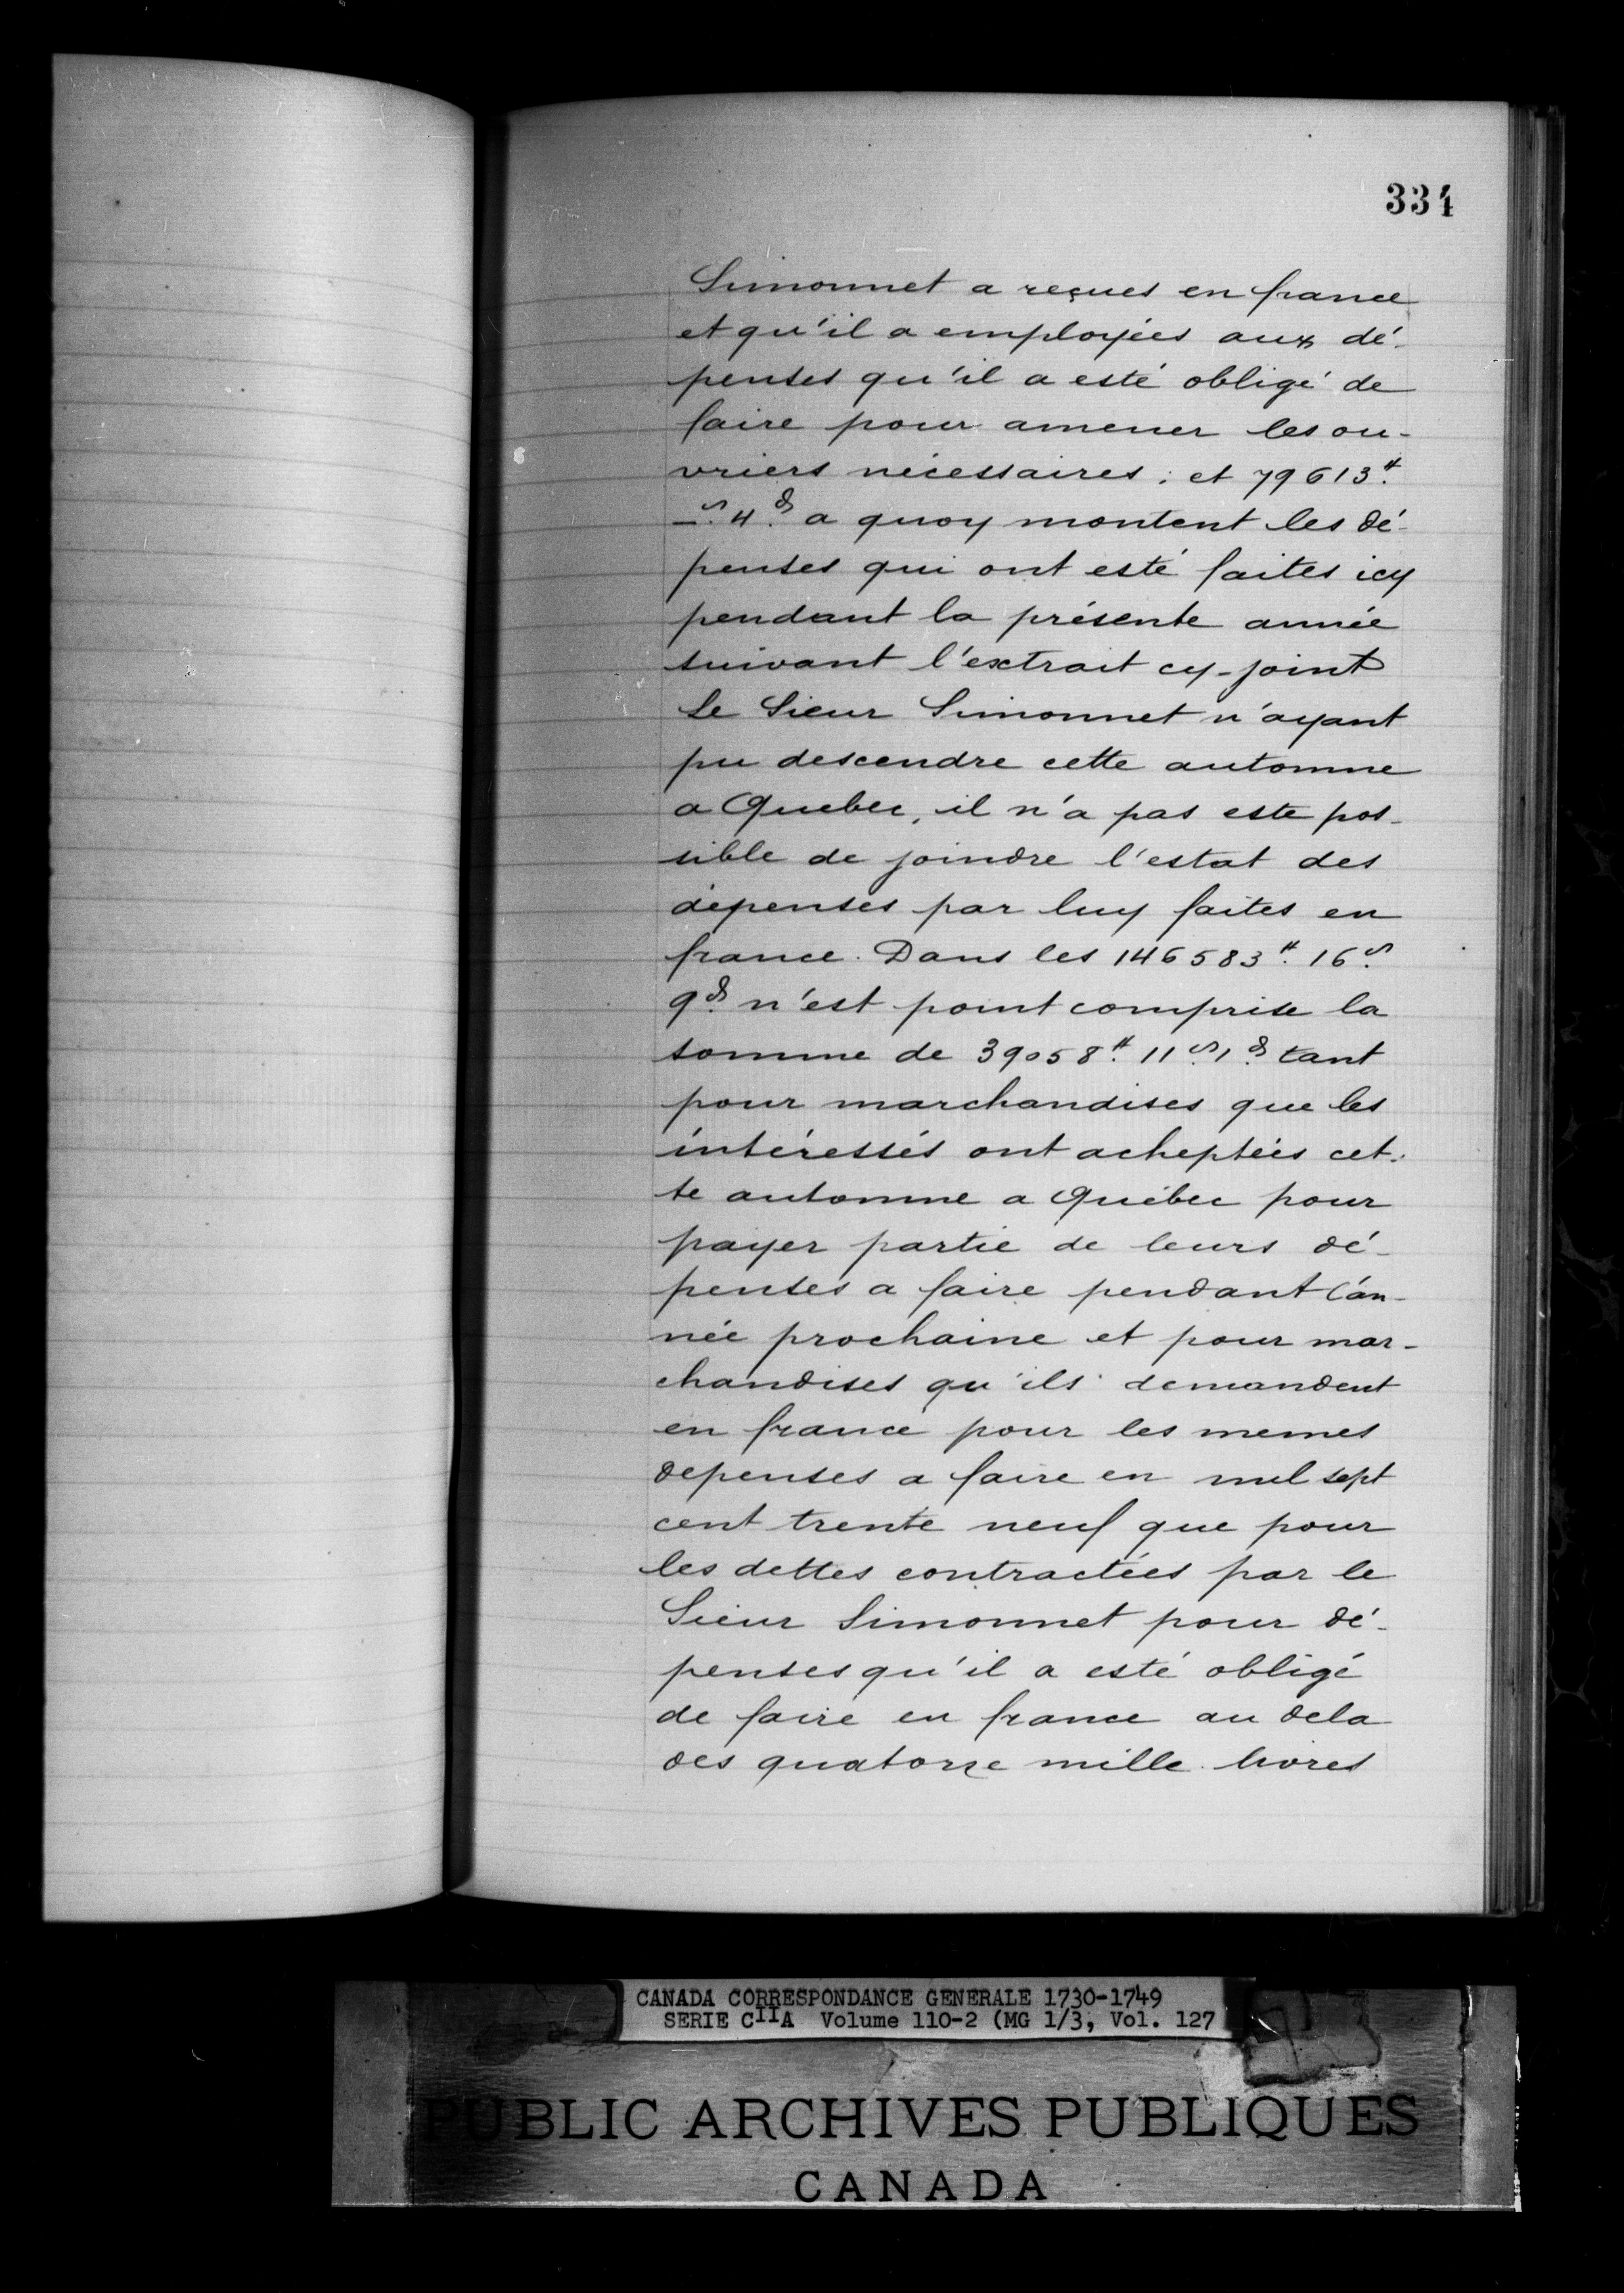 334
Simonnet a reçues en france
et qu'il a employées aux dé-
penses qu'il a esté obligé de
faire pour amener les ou-
vriers nécessaires; et 79613₶.
–s. 4.d a quoy montent les dé-
penses qui ont esté faites icy
pendant la présente année
suivant l'extrait cy-joint
Le Sieur Simonnet n'ayant
pu descendre cette automne
a Quebec, il n'a pas este pos-
sible de joindre l'estat des
dépenses par luy faites en
france. Dans les 146583₶. 16.s
9.d n'est point comprise la
somme de 39058₶. 11.s 1.d tant
pour marchandises que les
intéressés ont acheptées cet-
te automne a Québec pour
payer partie de leurs dé-
penses a faire pendant l'an-
née prochaine et pour mar-
chandises qu'ils demandent
en france pour les memes
depenses a faire en mil sept
cent trente neuf que pour
les dettes contractées par le
Sieur Simonnet pour dé-
penses qu'il a esté obligé
de faire en france au dela
des quatorze mille livres
CANADA CORRESPONDANCE GENERALE 1730-1749
SERIE CIIA Volume 110-2 (MG 1/3, Vol. 127
PUBLIC ARCHIVES PUBLIQUES
CANADA